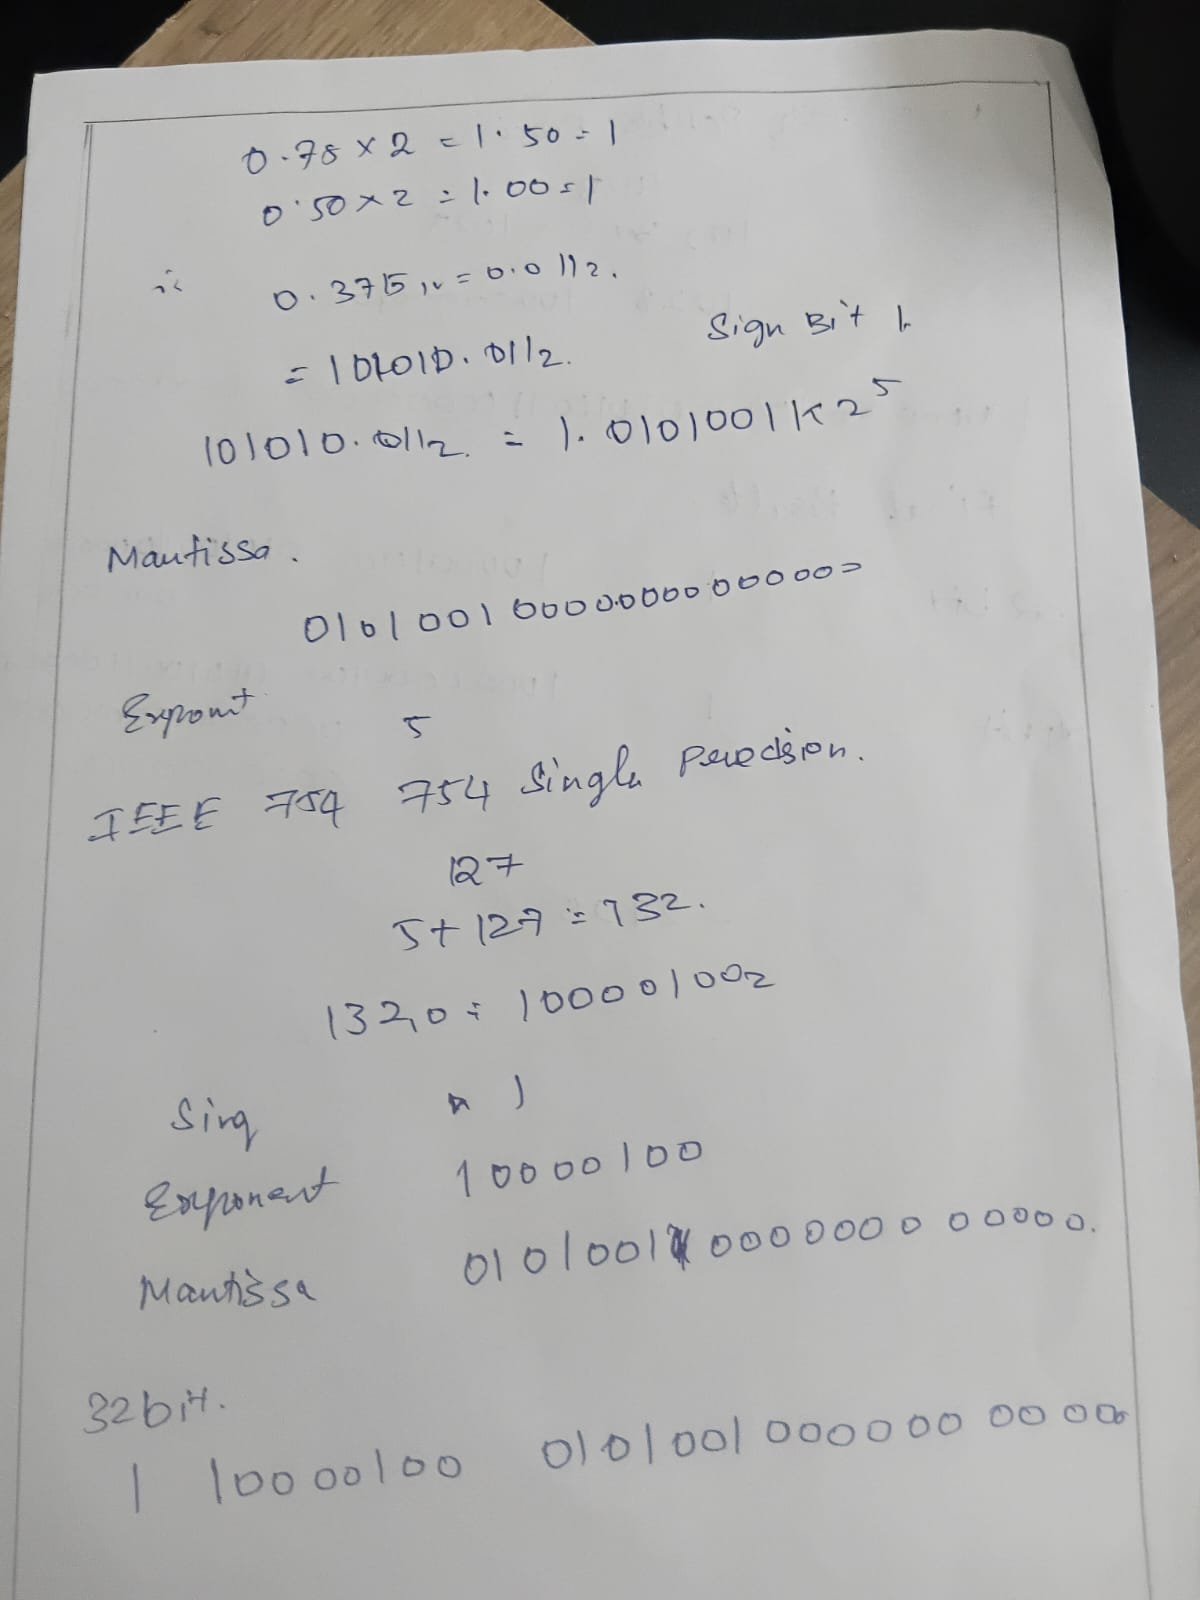 0.78 x 2 = 1.50 = 1
0.50 x 2 = 1.00 = 1
0.375₁₀ = 0.011₂.
= 101010.011₂. Sign Bit 1.
101010.011₂. = 1.01010011 x 2⁵
Mantissa.
01010010000000000000000
Exponit 5
IEEE 754 754 Single Precision.
127
5 + 127 = 132.
132₁₀ = 10000100₂
Sing 1
Exponent 10000100
Mantissa 0101001 0000000 00000.
32 bit.
1 10000100 0101001000000 00 000